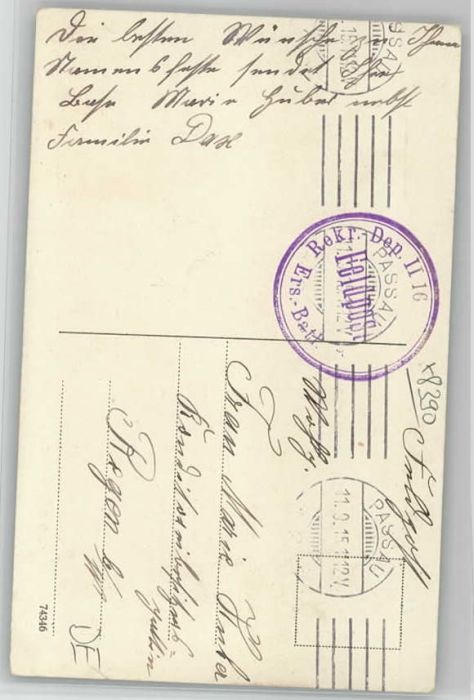 Die besten Wünsche zu Ihrem
Namensfeste sendet Ihre
Base Marie Huber nebst
Familie Dax
PASSAU
Ers.-Batl. Rekr.-Dep. II 16
Feldpost
PASSAU
x8290
Feldpost
PASSAU
11.9.15.1-12V.
Frau Marie Huber
Regen
DE
74346